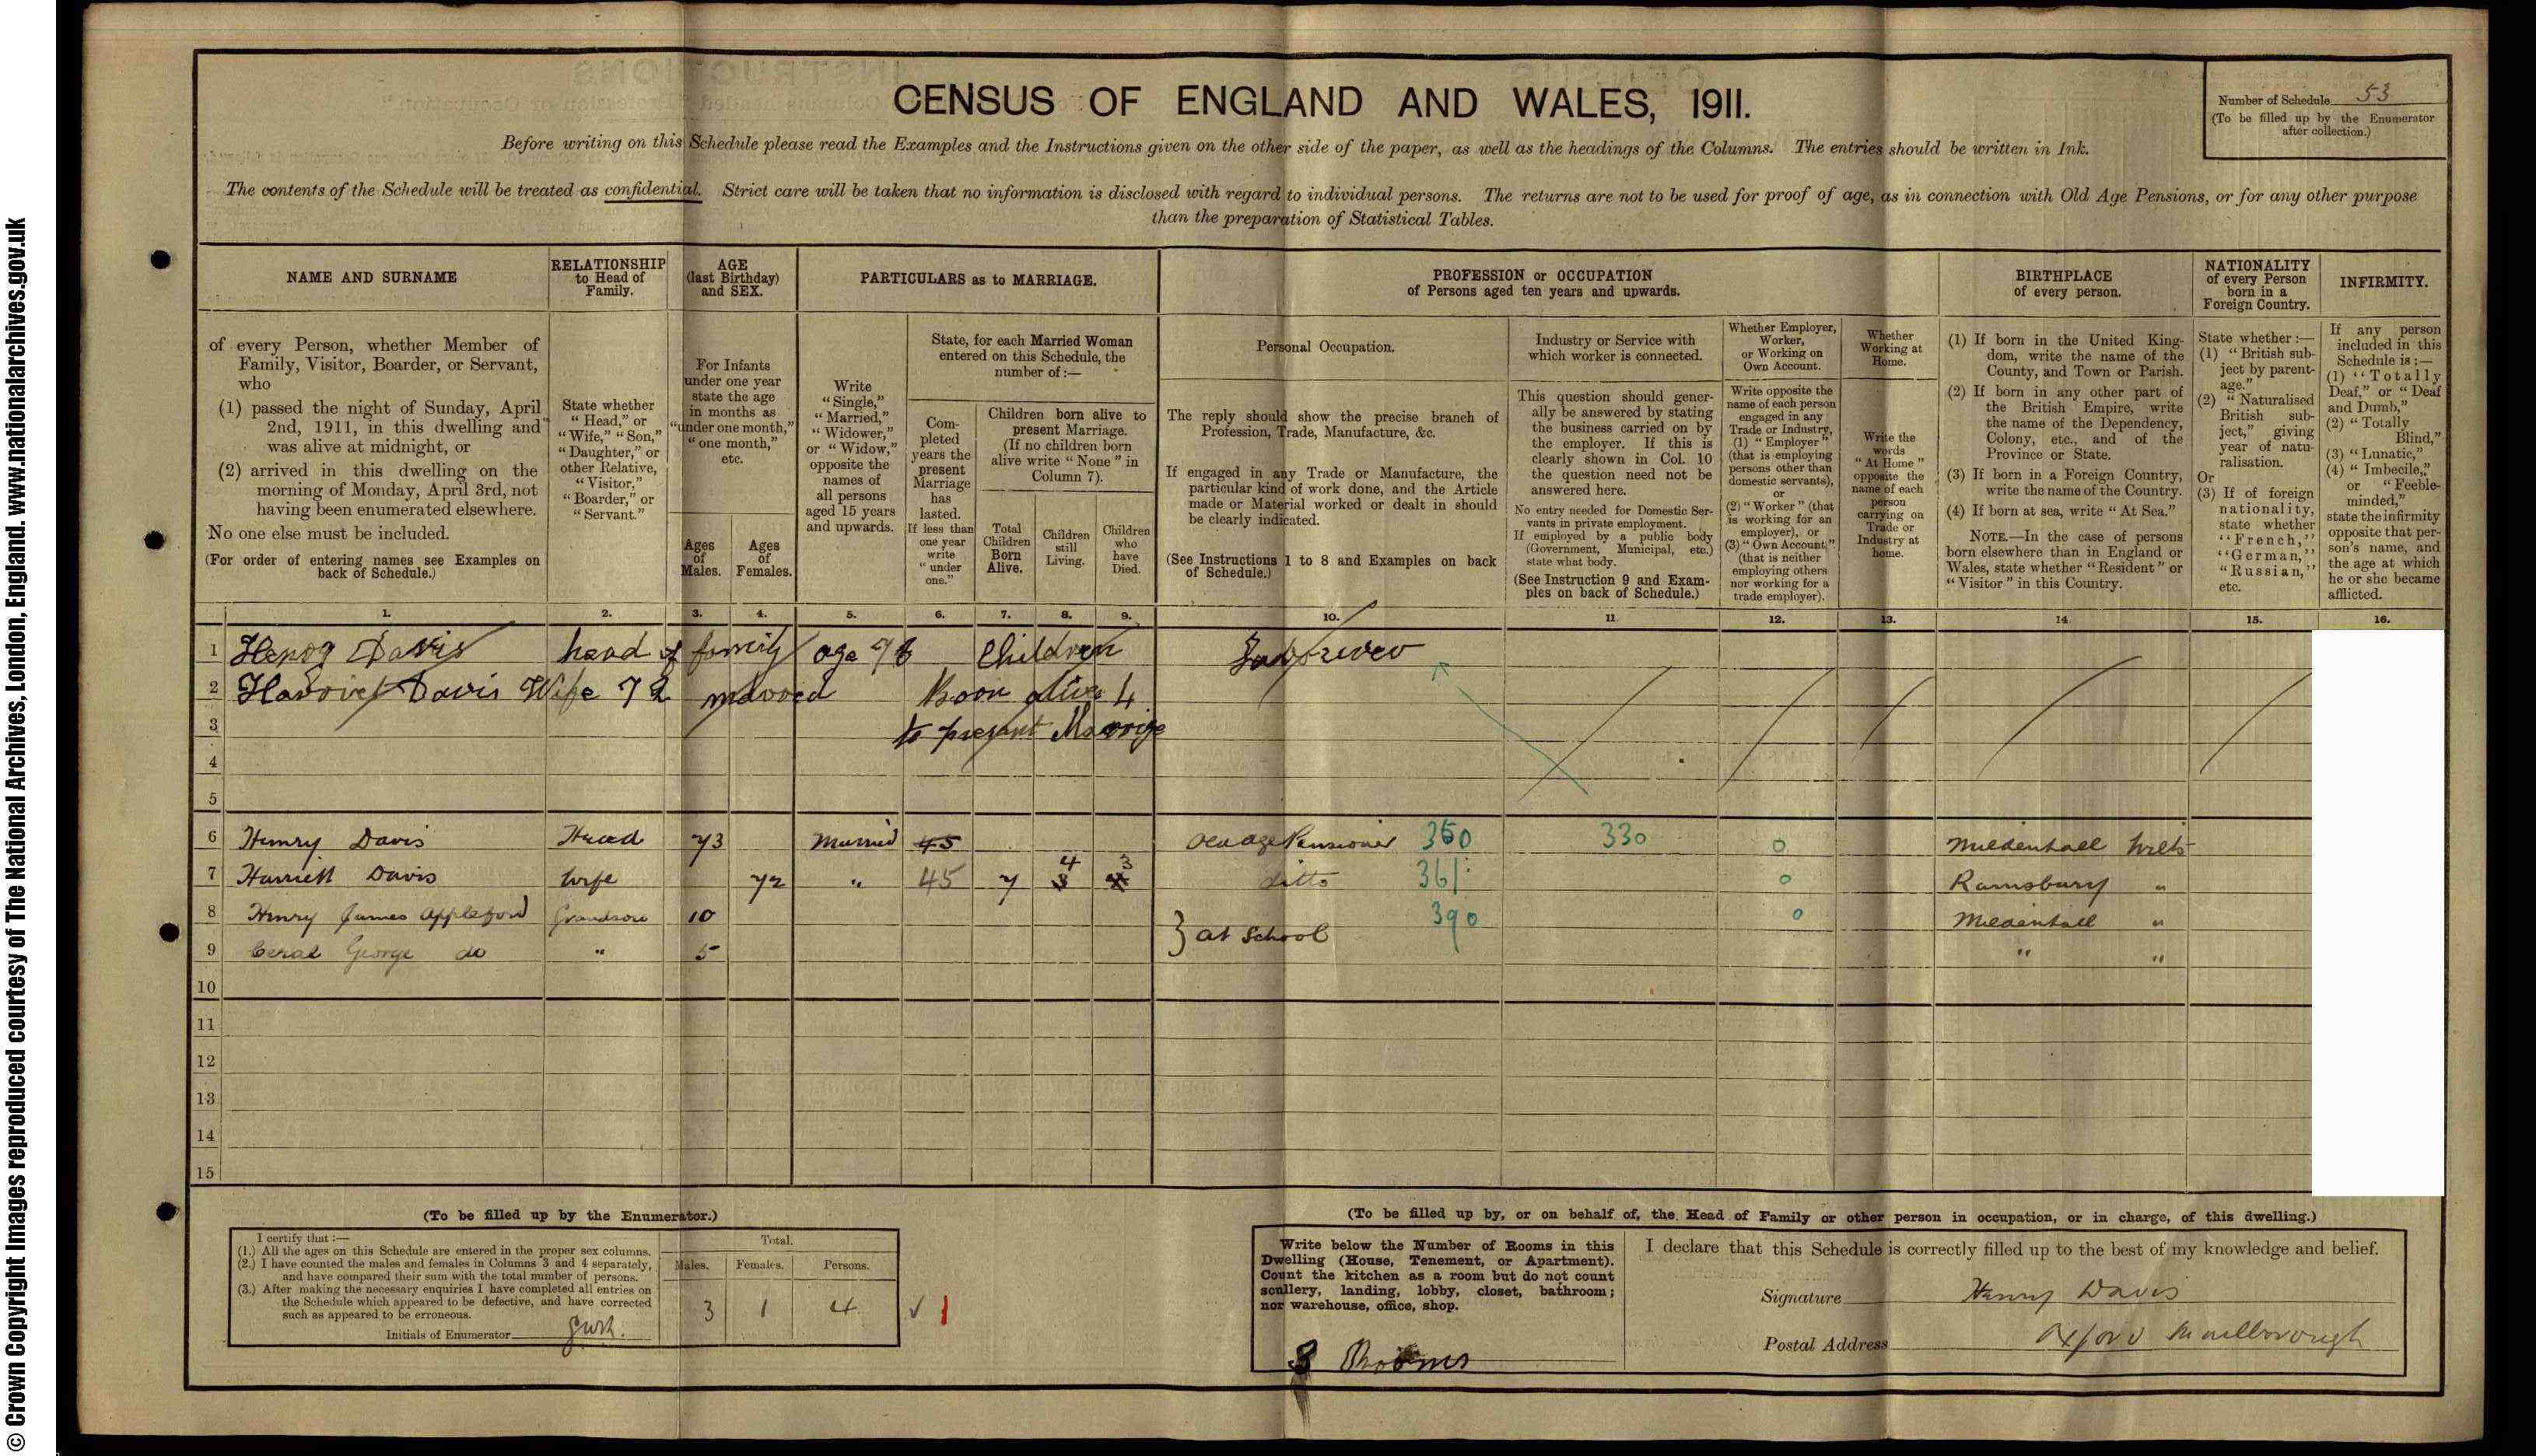 © Crown Copyright Images reproduced courtesy of The National Archives, London, England. www.nationalarchives.gov.uk
CENSUS OF ENGLAND AND WALES, 1911.
Number of Schedule 53
(To be filled up by the Enumerator
after collection.)
Before writing on this Schedule please read the Examples and the Instructions given on the other side of the paper, as well as the headings of the Columns. The entries should be written in Ink.
The contents of the Schedule will be treated as confidential. Strict care will be taken that no information is disclosed with regard to individual persons. The returns are not to be used for proof of age, as in connection with Old Age Pensions, or for any other purpose
than the preparation of Statistical Tables.
NAME AND SURNAME
of every Person, whether Member of
Family, Visitor, Boarder, or Servant,
who
(1) passed the night of Sunday, April
2nd, 1911, in this dwelling and
was alive at midnight, or
(2) arrived in this dwelling on the
morning of Monday, April 3rd, not
having been enumerated elsewhere.
No one else must be included.
(For order of entering names see Examples on
back of Schedule.)
RELATIONSHIP
to Head of
Family.
State whether
"Head," or
"Wife," "Son,"
"Daughter," or
other Relative,
"Visitor,"
"Boarder," or
"Servant."
AGE
(last Birthday)
and SEX.
For Infants
under one year
state the age
in months as
"under one month,"
"one month,"
etc.
Ages
of
Males.
Ages
of
Females.
PARTICULARS as to MARRIAGE.
Write
"Single,"
"Married,"
"Widower,"
or "Widow,"
opposite the
names of
all persons
aged 15 years
and upwards.
State, for each Married Woman
entered on this Schedule, the
number of:—
Com-
pleted
years the
present
Marriage
has
lasted.
If less than
one year
write
"under
one."
Children born alive to
present Marriage.
(If no children born
alive write "None" in
Column 7).
Total
Children
Born
Alive.
Children
still
Living.
Children
who
have
Died.
PROFESSION or OCCUPATION
of Persons aged ten years and upwards.
Personal Occupation.
The reply should show the precise branch of
Profession, Trade, Manufacture, &c.
If engaged in any Trade or Manufacture, the
particular kind of work done, and the Article
made or Material worked or dealt in should
be clearly indicated.
(See Instructions 1 to 8 and Examples on back
of Schedule.)
Industry or Service with
which worker is connected.
This question should gener-
ally be answered by stating
the business carried on by
the employer. If this is
clearly shown in Col. 10
the question need not be
answered here.
No entry needed for Domestic Ser-
vants in private employment.
If employed by a public body
(Government, Municipal, etc.)
state what body.
(See Instruction 9 and Exam-
ples on back of Schedule.)
Whether Employer,
Worker,
or Working on
Own Account.
Write opposite the
name of each person
engaged in any
Trade or Industry,
(1) "Employer"
(that is employing
persons other than
domestic servants),
or
(2) "Worker" (that
is working for an
employer), or
(3) "Own Account,"
(that is neither
employing others
nor working for a
trade employer).
Whether
Working at
Home.
Write the
words
"At Home"
opposite the
name of each
person
carrying on
Trade or
Industry at
home.
BIRTHPLACE
of every person.
(1) If born in the United King-
dom, write the name of the
County, and Town or Parish.
(2) If born in any other part of
the British Empire, write
the name of the Dependency,
Colony, etc., and of the
Province or State.
(3) If born in a Foreign Country,
write the name of the Country.
(4) If born at sea, write "At Sea."
NOTE.—In the case of persons
born elsewhere than in England or
Wales, state whether "Resident" or
"Visitor" in this Country.
NATIONALITY
of every Person
born in a
Foreign Country.
State whether:—
(1) "British sub-
ject by parent-
age."
(2) "Naturalised
British sub-
ject," giving
year of natu-
ralisation.
Or
(3) If of foreign
nationality,
state whether
"French,"
"German,"
"Russian,"
etc.
INFIRMITY.
If any person
included in this
Schedule is:—
(1) "Totally
Deaf," or "Deaf
and Dumb,"
(2) "Totally
Blind,"
(3) "Lunatic,"
(4) "Imbecile,"
or "Feeble-
minded,"
state the infirmity
opposite that per-
son's name, and
the age at which
he or she became
afflicted.
1. 2. 3. 4. 5. 6. 7. 8. 9. 10. 11 12. 13. 14. 15. 16.
1 Davis head of family age Children
2 Davis Wife 72 Born alive 4
3 to present
4
5
6 Henry Davis Head 73 Married 45 old age Pensioner 330 0 Mildenhall Wilts
7 Harriett Davis Wife 72 " 45 7 4 3 ditto 361 0 Ramsbury "
8 Henry James Appleford Grandson 10 390 0 Mildenhall "
9 George do " 5 } at School " "
10
11
12
13
14
15
(To be filled up by the Enumerator.)
I certify that:—
(1.) All the ages on this Schedule are entered in the proper sex columns.
(2.) I have counted the males and females in Columns 3 and 4 separately,
and have compared their sum with the total number of persons.
(3.) After making the necessary enquiries I have completed all entries on
the Schedule which appeared to be defective, and have corrected
such as appeared to be erroneous.
Initials of Enumerator
Total.
Males. Females. Persons.
3 1 4 ✓ 1
(To be filled up by, or on behalf of, the Head of Family or other person in occupation, or in charge, of this dwelling.)
Write below the Number of Rooms in this
Dwelling (House, Tenement, or Apartment).
Count the kitchen as a room but do not count
scullery, landing, lobby, closet, bathroom;
nor warehouse, office, shop.
Rooms
I declare that this Schedule is correctly filled up to the best of my knowledge and belief.
Signature Henry Davis
Postal Address Marlborough